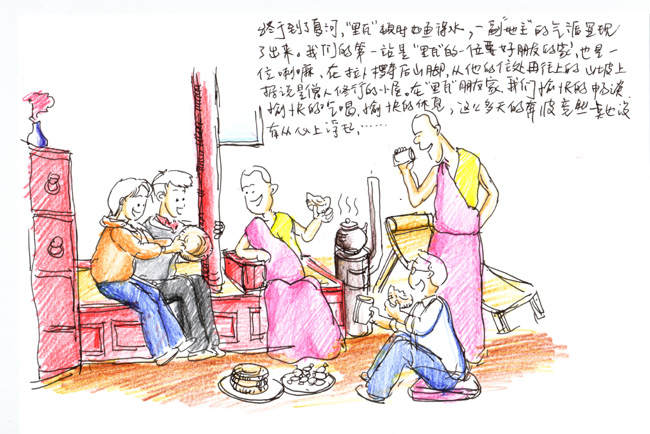 终于到了夏河，"里瓦"顿时如鱼得水，一副"地主"的气派呈现
了出来。我们的第一站是"里瓦"的一位要好朋友的家，也是一
位喇嘛，在拉卜楞寺后山脚，从他的住处再往上的山坡上
据说是僧人修行的小屋。在"里瓦"朋友家，我们愉快的畅谈，
愉快的吃喝，愉快的休息，这么多天的奔波竟然一点也没
有从心上浮起，……